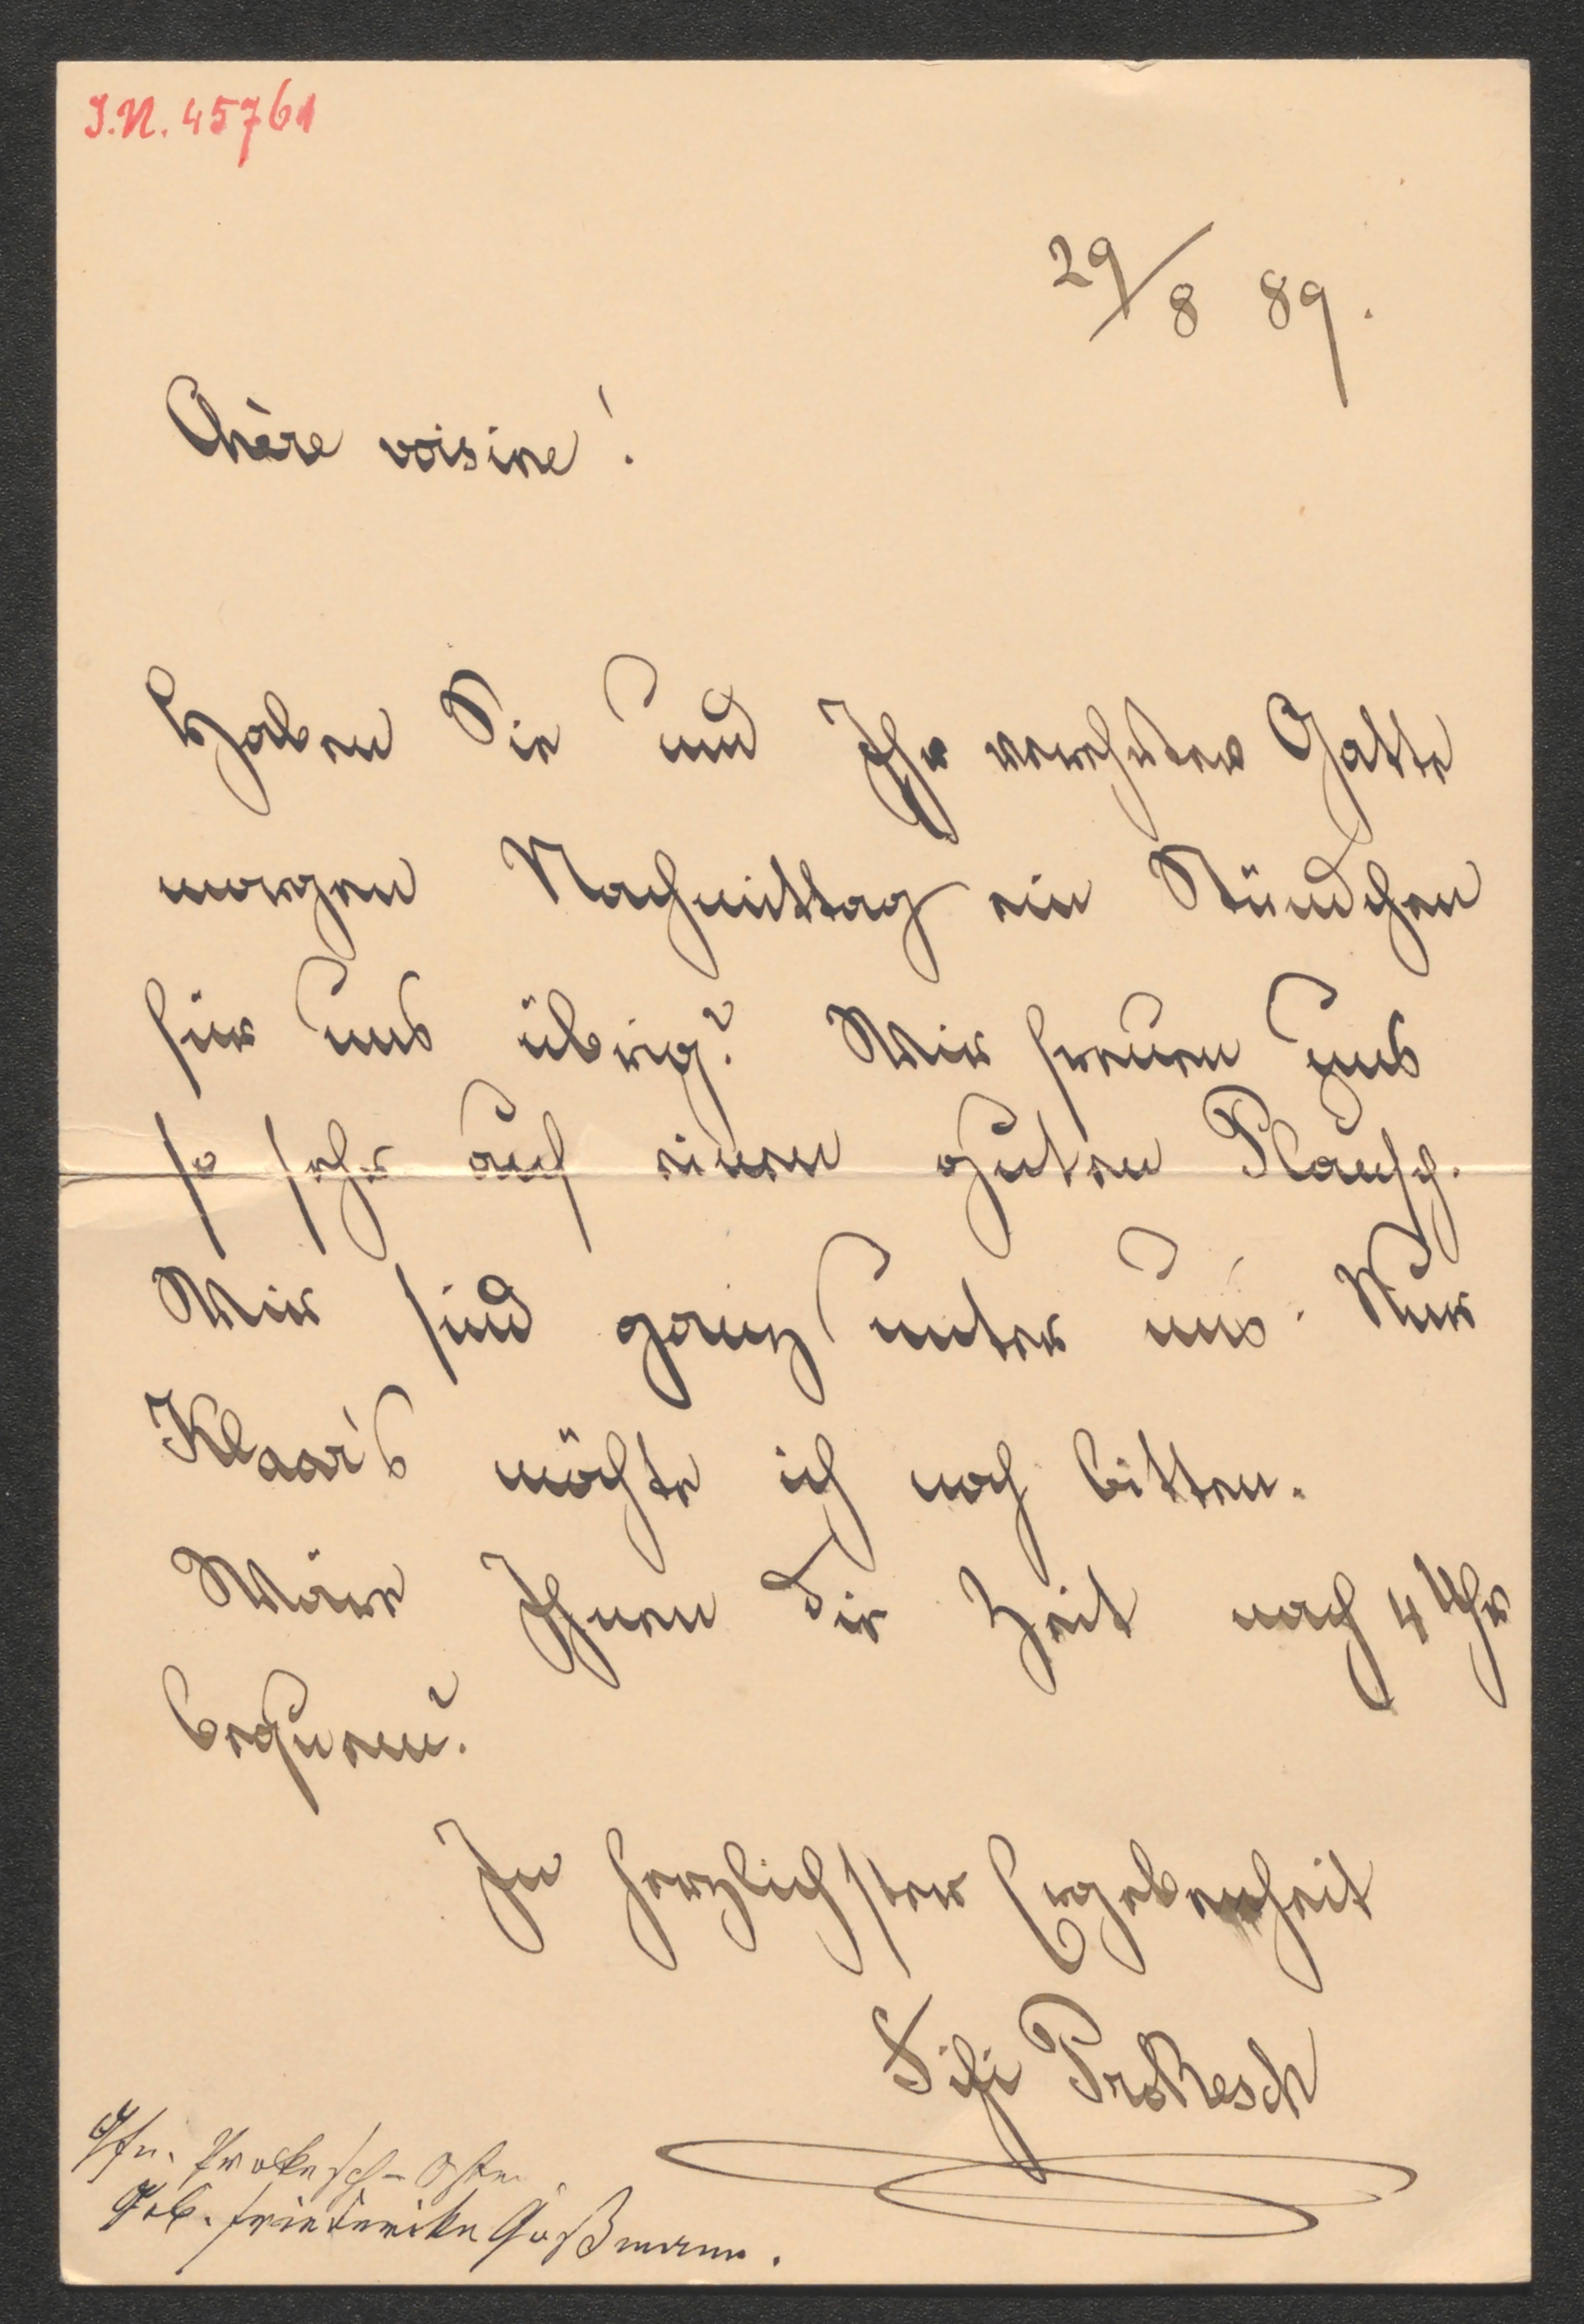 I.N. 45761
29/8 89.
Chère voisine!
Haben Sie und Ihr verehrter Gatte
morgen Nachmittag ein Stündchen
für uns übrig? Wir freuen uns
so sehr auf einen guten Plausch.
Wir sind ganz unter uns. Nur
Klaar's möchte ich noch bitten.
Wäre Ihnen die Zeit nach 4 Uhr
bequem?
In herzlichster Ergebenheit
Fifi Prokesch
Gfn. Prokesch-Osten
Geb. Friederike Goßmann.